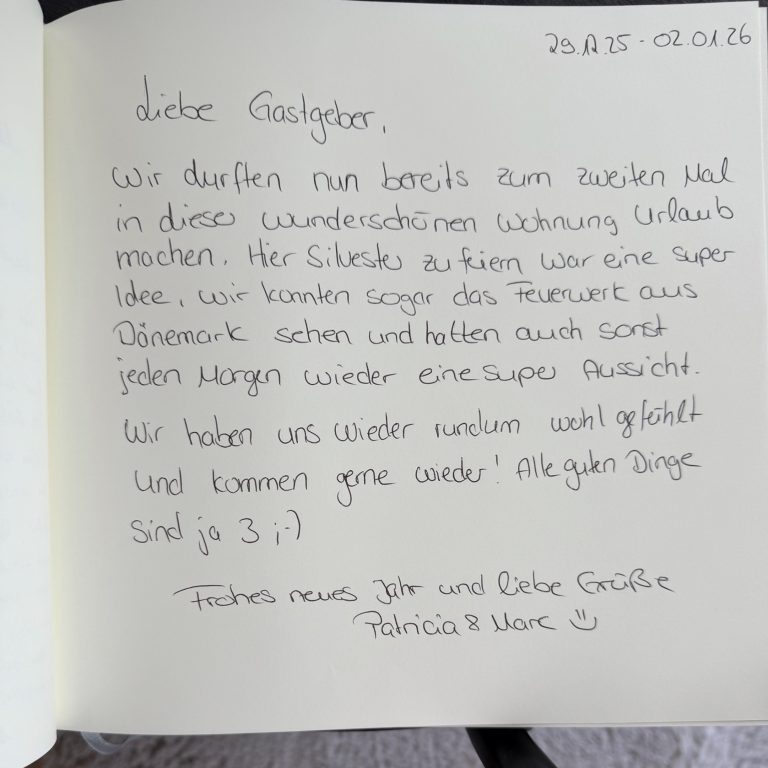 29.12.25 - 02.01.26
Liebe Gastgeber,
wir durften nun bereits zum zweiten Mal
in dieser wunderschönen Wohnung Urlaub
machen. Hier Silvester zu feiern war eine super
Idee, wir konnten sogar das Feuerwerk aus
Dänemark sehen und hatten auch sonst
jeden Morgen wieder eine super Aussicht.
Wir haben uns wieder rundum wohl gefühlt
und kommen gerne wieder! Alle guten Dinge
sind ja 3 ;-)
Frohes neues Jahr und liebe Grüße
Patricia & Marc